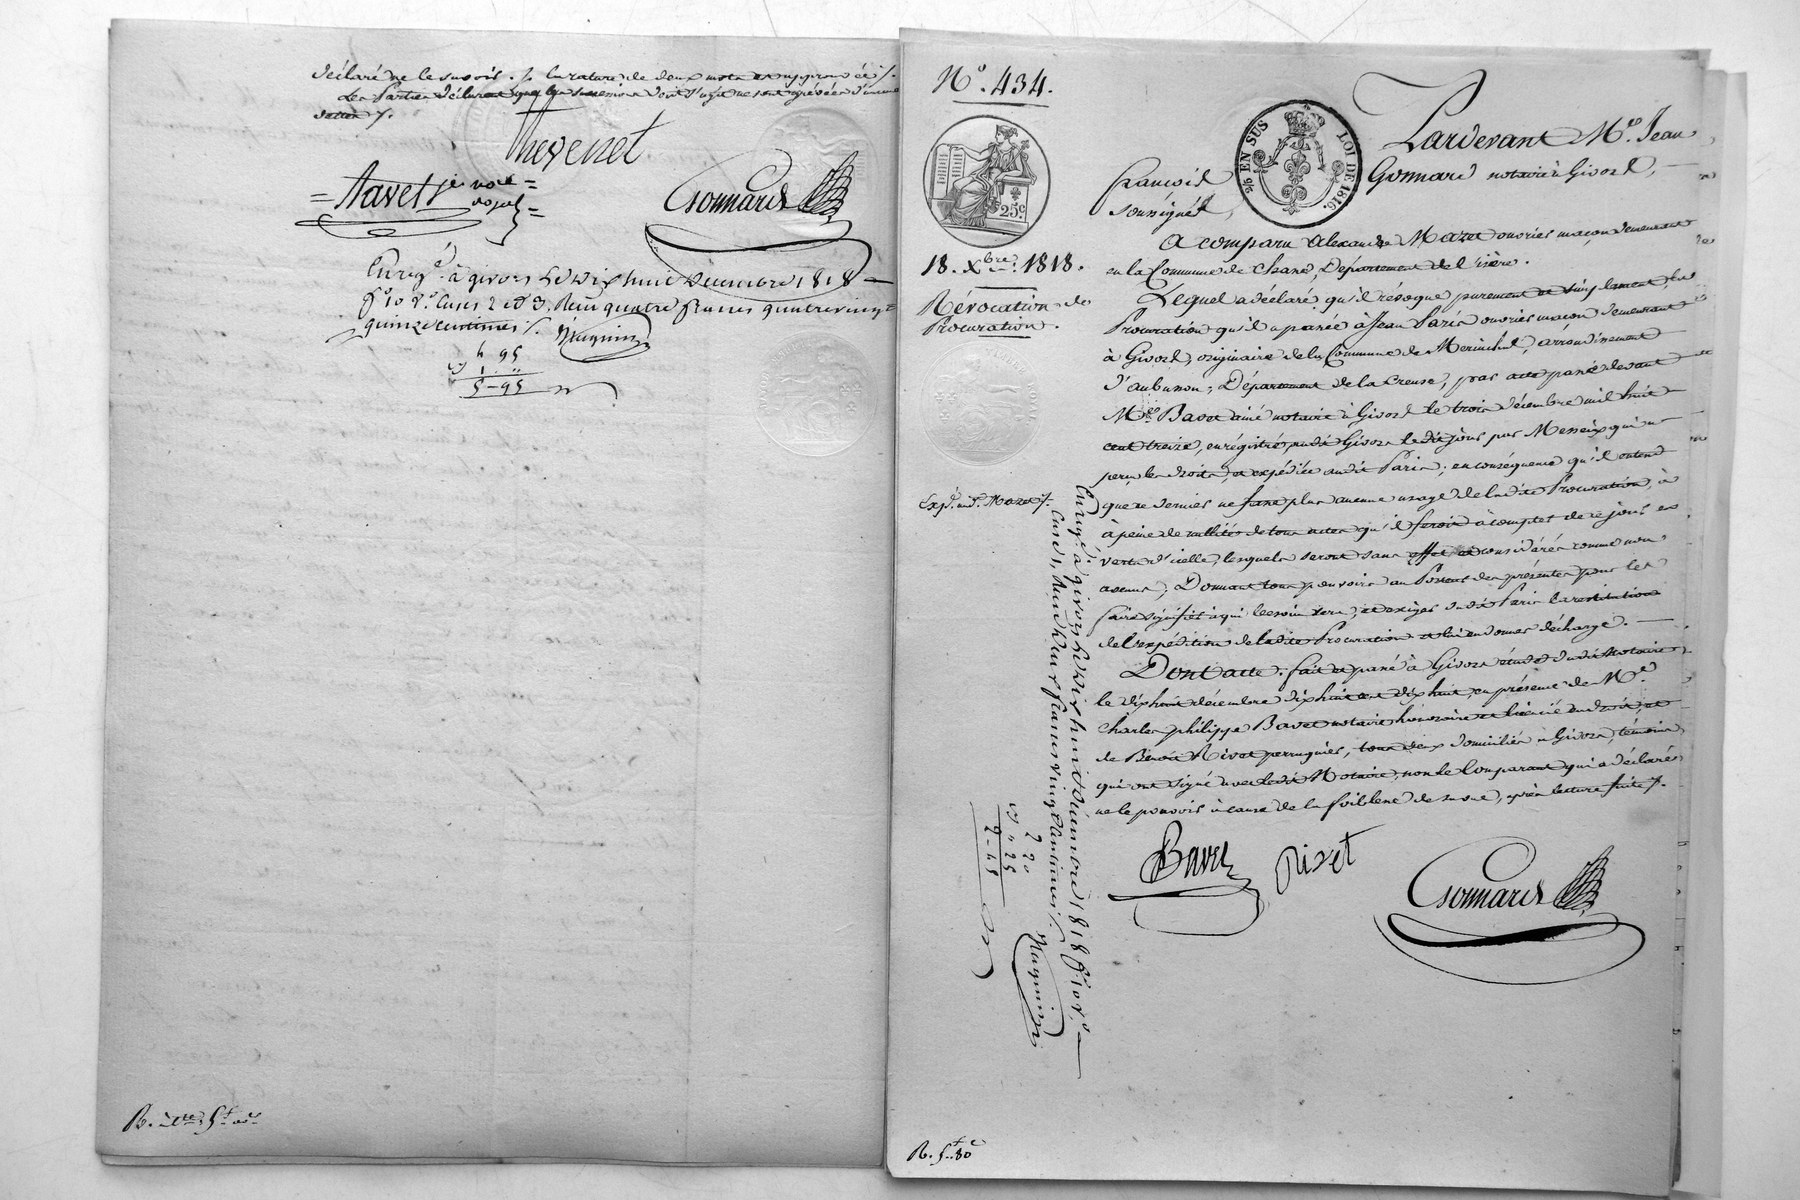 déclaré ne le savoir. /. la rature de deux mots est approuvée /.
Les Parties déclarent que les successions dont s'agit ne sont grévées d'aucune
dettes /.
Thevenet
= Navet = 
Gonnard
Enreg.é à givors Le dix huit Decembre 1818 —
f.o 10 v.o Cases 2 et 3, Reçu quatre francs quatre vingt
quinze centimes /. Magnin
4 95
1 "
5-95
N.o 434.
25c
2/5 EN SUS LOI DE 1816.
18. Xbre. 1818.
Révocation de
Procuration.
Exp.é au S. Mazet /.
Pardevant M.e Jean
françois Gonnard notaire à Givors,
soussigné,
A comparu Alexandre Mazet ouvrier maçon demeurant
en la Commune de Chane, Département de l'isère.
Lequel a déclaré qu'il révoque purement et simplement, la
Procuration qu'il a passée à Jean Paris ouvrier maçon demeurant
à Givors, originaire de la Commune de Merinchal, arrondissement
d'aubusson, Département de la Creuse, par acte passé devant
M.e Bavet ainé notaire à Givors le trois décembre mil huit
cent treize, enrégistré, audit Givors ledit jour par Messeix qui a
perçu les droits, et expédiée audit Paris; en conséquence qu'il entend
que ce dernier ne fasse plus aucune usage de ladite Procuration, à
à peine de nullité de tous actes qu'il feroit à compter de ce jour en
vertu d'icelle, lesquels seront sans effet et considérés comme non
avenus; Donnant tous pouvoirs au Porteur des présentes pour les
faire signifier à qui besoin sera, et exiger dudit Paris la restitution
de l'expédition de ladite Procuration et lui en donner décharge. —
Dont acte. fait et passé à Givors étude dudit Notaire
le dix huit décembre dix huit cent dix huit, en présence de M.e
Charles philippe Bavet notaire honoraire et licencié en droit, et
de Benoit Rivet perruquier, tous deux domiciliés à Givors, témoins
qui ont signé avec ledit Notaire, non le Comparant qui a déclaré
ne le pouvoir à cause de la foiblesse de sa vue, après lecture faite /.
Bavet Rivet
Gonnard
Enreg.é à givors Le dix huit décembre 1818 f.o 10 v.o —
Case 1, Reçu deux francs vingt centimes /. Magnin
2 20
25
2-45
R. 5.. 80